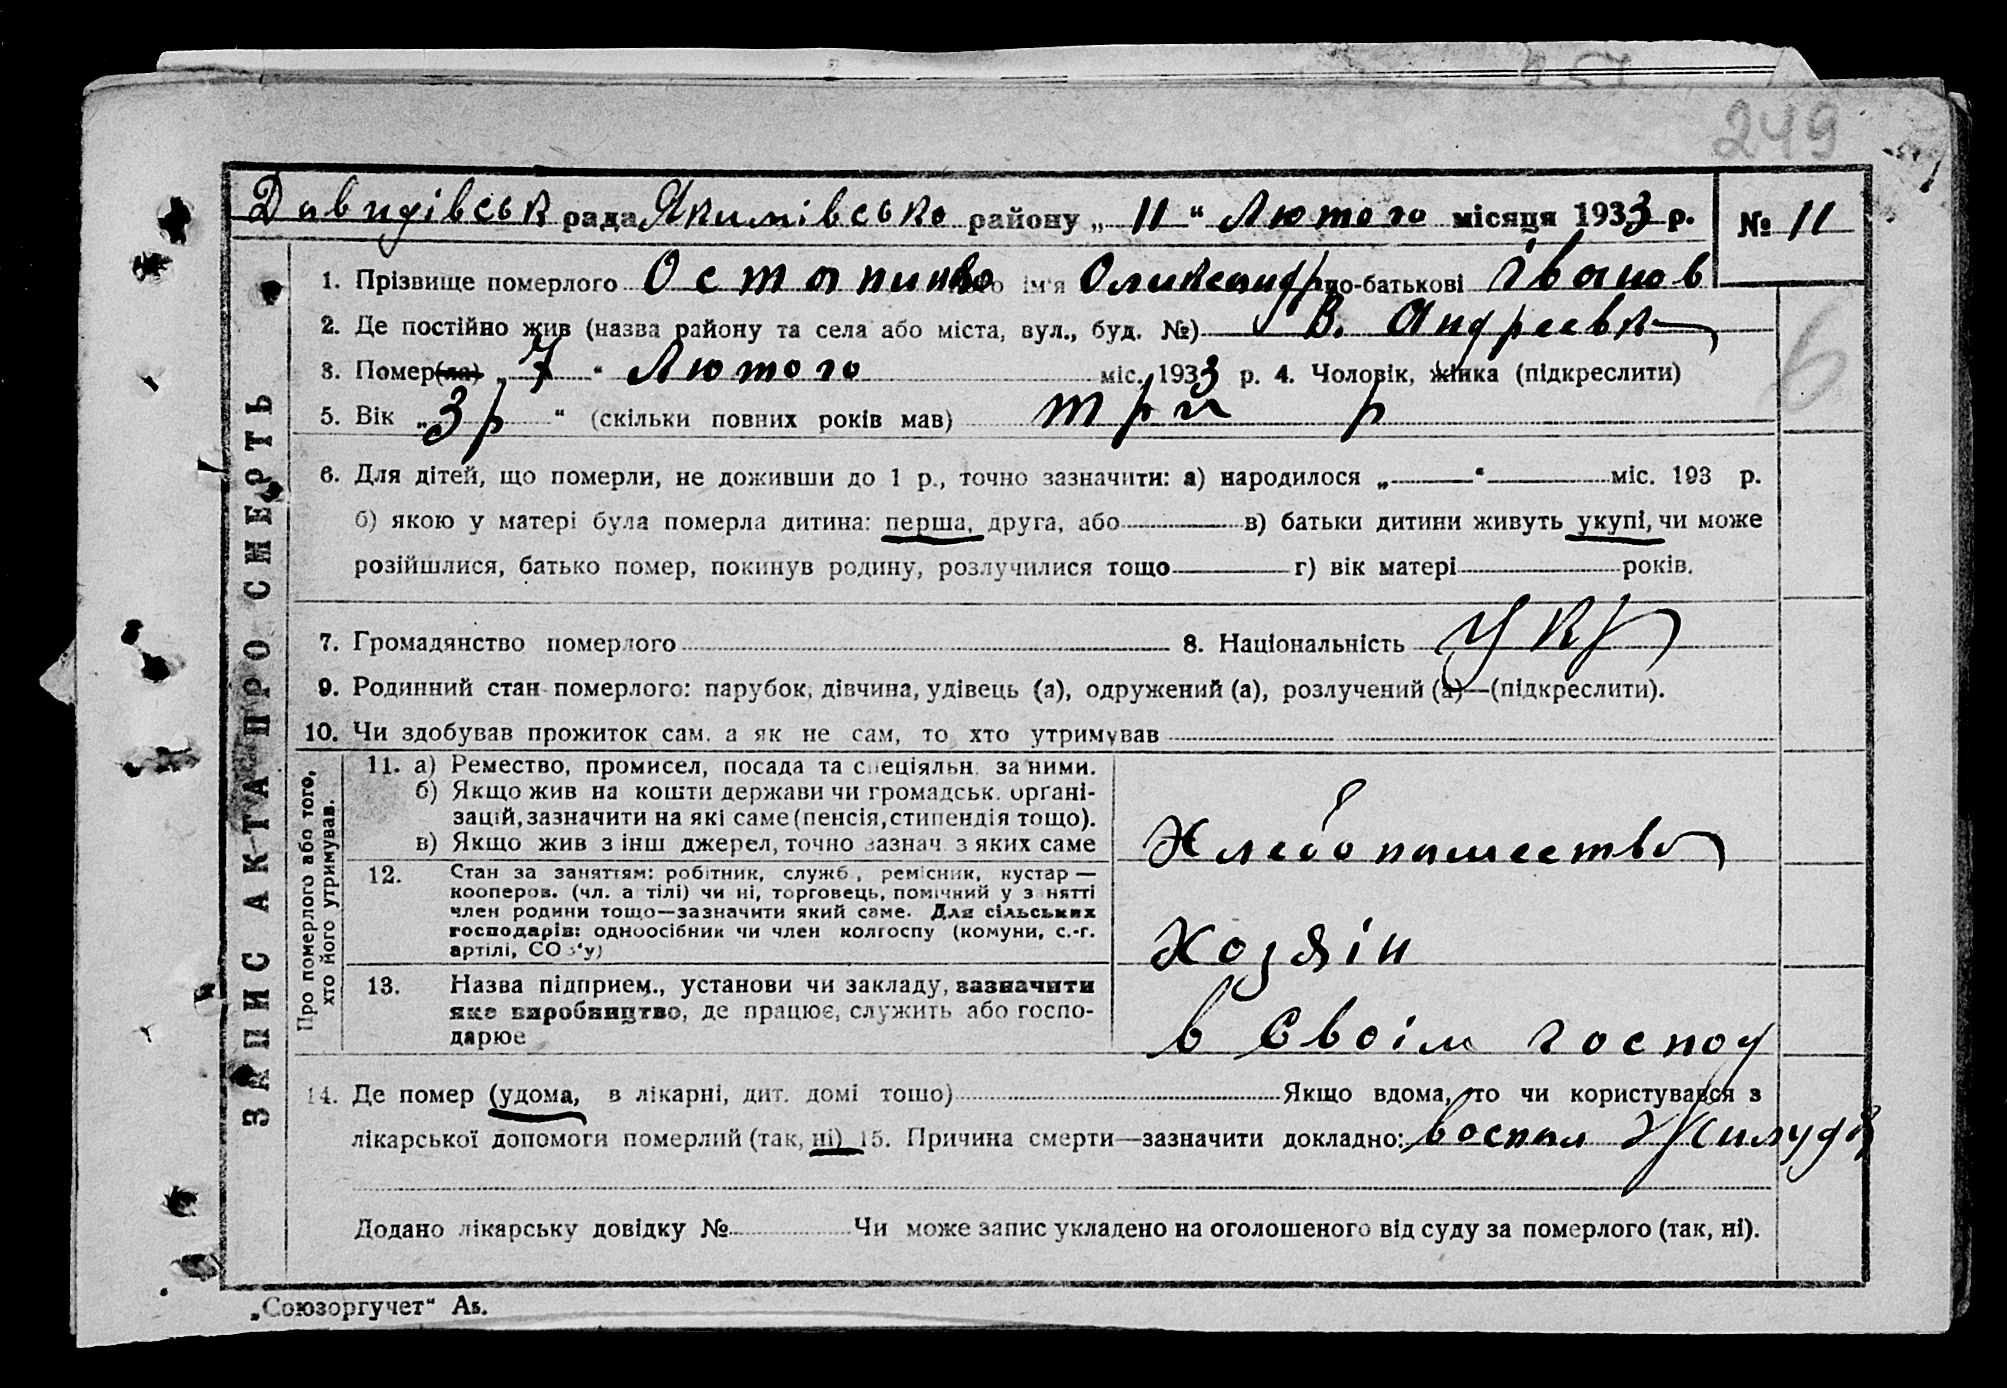 249
Давидівськ рада Якимівсько району „ 11 “ Лютого місяця 1933 р. № 11
1. Прізвище померлого Остапинко його ім'я Олександр по-батькові Іванов
2. Де постійно жив (назва району та села або міста, вул., буд. №) В. Андреевк
3. Помер(ла) „ 7 “ Лютого міс. 1933 р. 4. Чоловік, жінка (підкреслити)
5. Вік „ 3 р “ (скільки повних років мав) три р
6
6. Для дітей, що померли, не доживши до 1 р., точно зазначити: а) народилося „ — “ — міс. 193 р.
б) якою у матері була померла дитина: перша, друга, або — в) батьки дитини живуть укупі, чи може
розійшлися, батько помер, покинув родину, розлучилися тощо — г) вік матері — років.
7. Громадянство померлого 8. Національність укр
9. Родинний стан померлого: парубок, дівчина, удівець (а), одружений (а), розлучений (а)—(підкреслити).
10. Чи здобував прожиток сам, а як не сам, то хто утримував
ЗАПИС АКТА ПРО СМЕРТЬ
Про померлого або того,
хто його утримував.
11. а) Ремество, промисел, посада та спеціяльн. за ними.
б) Якщо жив на кошти держави чи громадськ. органі-
зацій, зазначити на які саме (пенсія, стипендія тощо).
в) Якщо жив з інш джерел, точно зазнач. з яких саме
Хлебопашество
12. Стан за заняттям: робітник, служб., ремісник, кустар —
кооперов. (чл. артілі) чи ні, торговець, помічний у занятті
член родини тощо—зазначити який саме. Для сільських
господарів: одноосібник чи член колгоспу (комуни, с.-г.
артілі, СОЗ'у)
Хозяін
13. Назва підприєм., установи чи закладу, зазначити
яке виробництво, де працює, служить або госпо-
дарює
в Своім господ
14. Де помер (удома, в лікарні, дит. домі тощо) Якщо вдома, то чи користувався з
лікарської допомоги померлий (так, ні) 15. Причина смерти—зазначити докладно: воспал Жилудк
Додано лікарську довідку № Чи може запис укладено на оголошеного від суду за померлого (так, ні).
„Союзоргучет“ Аз.